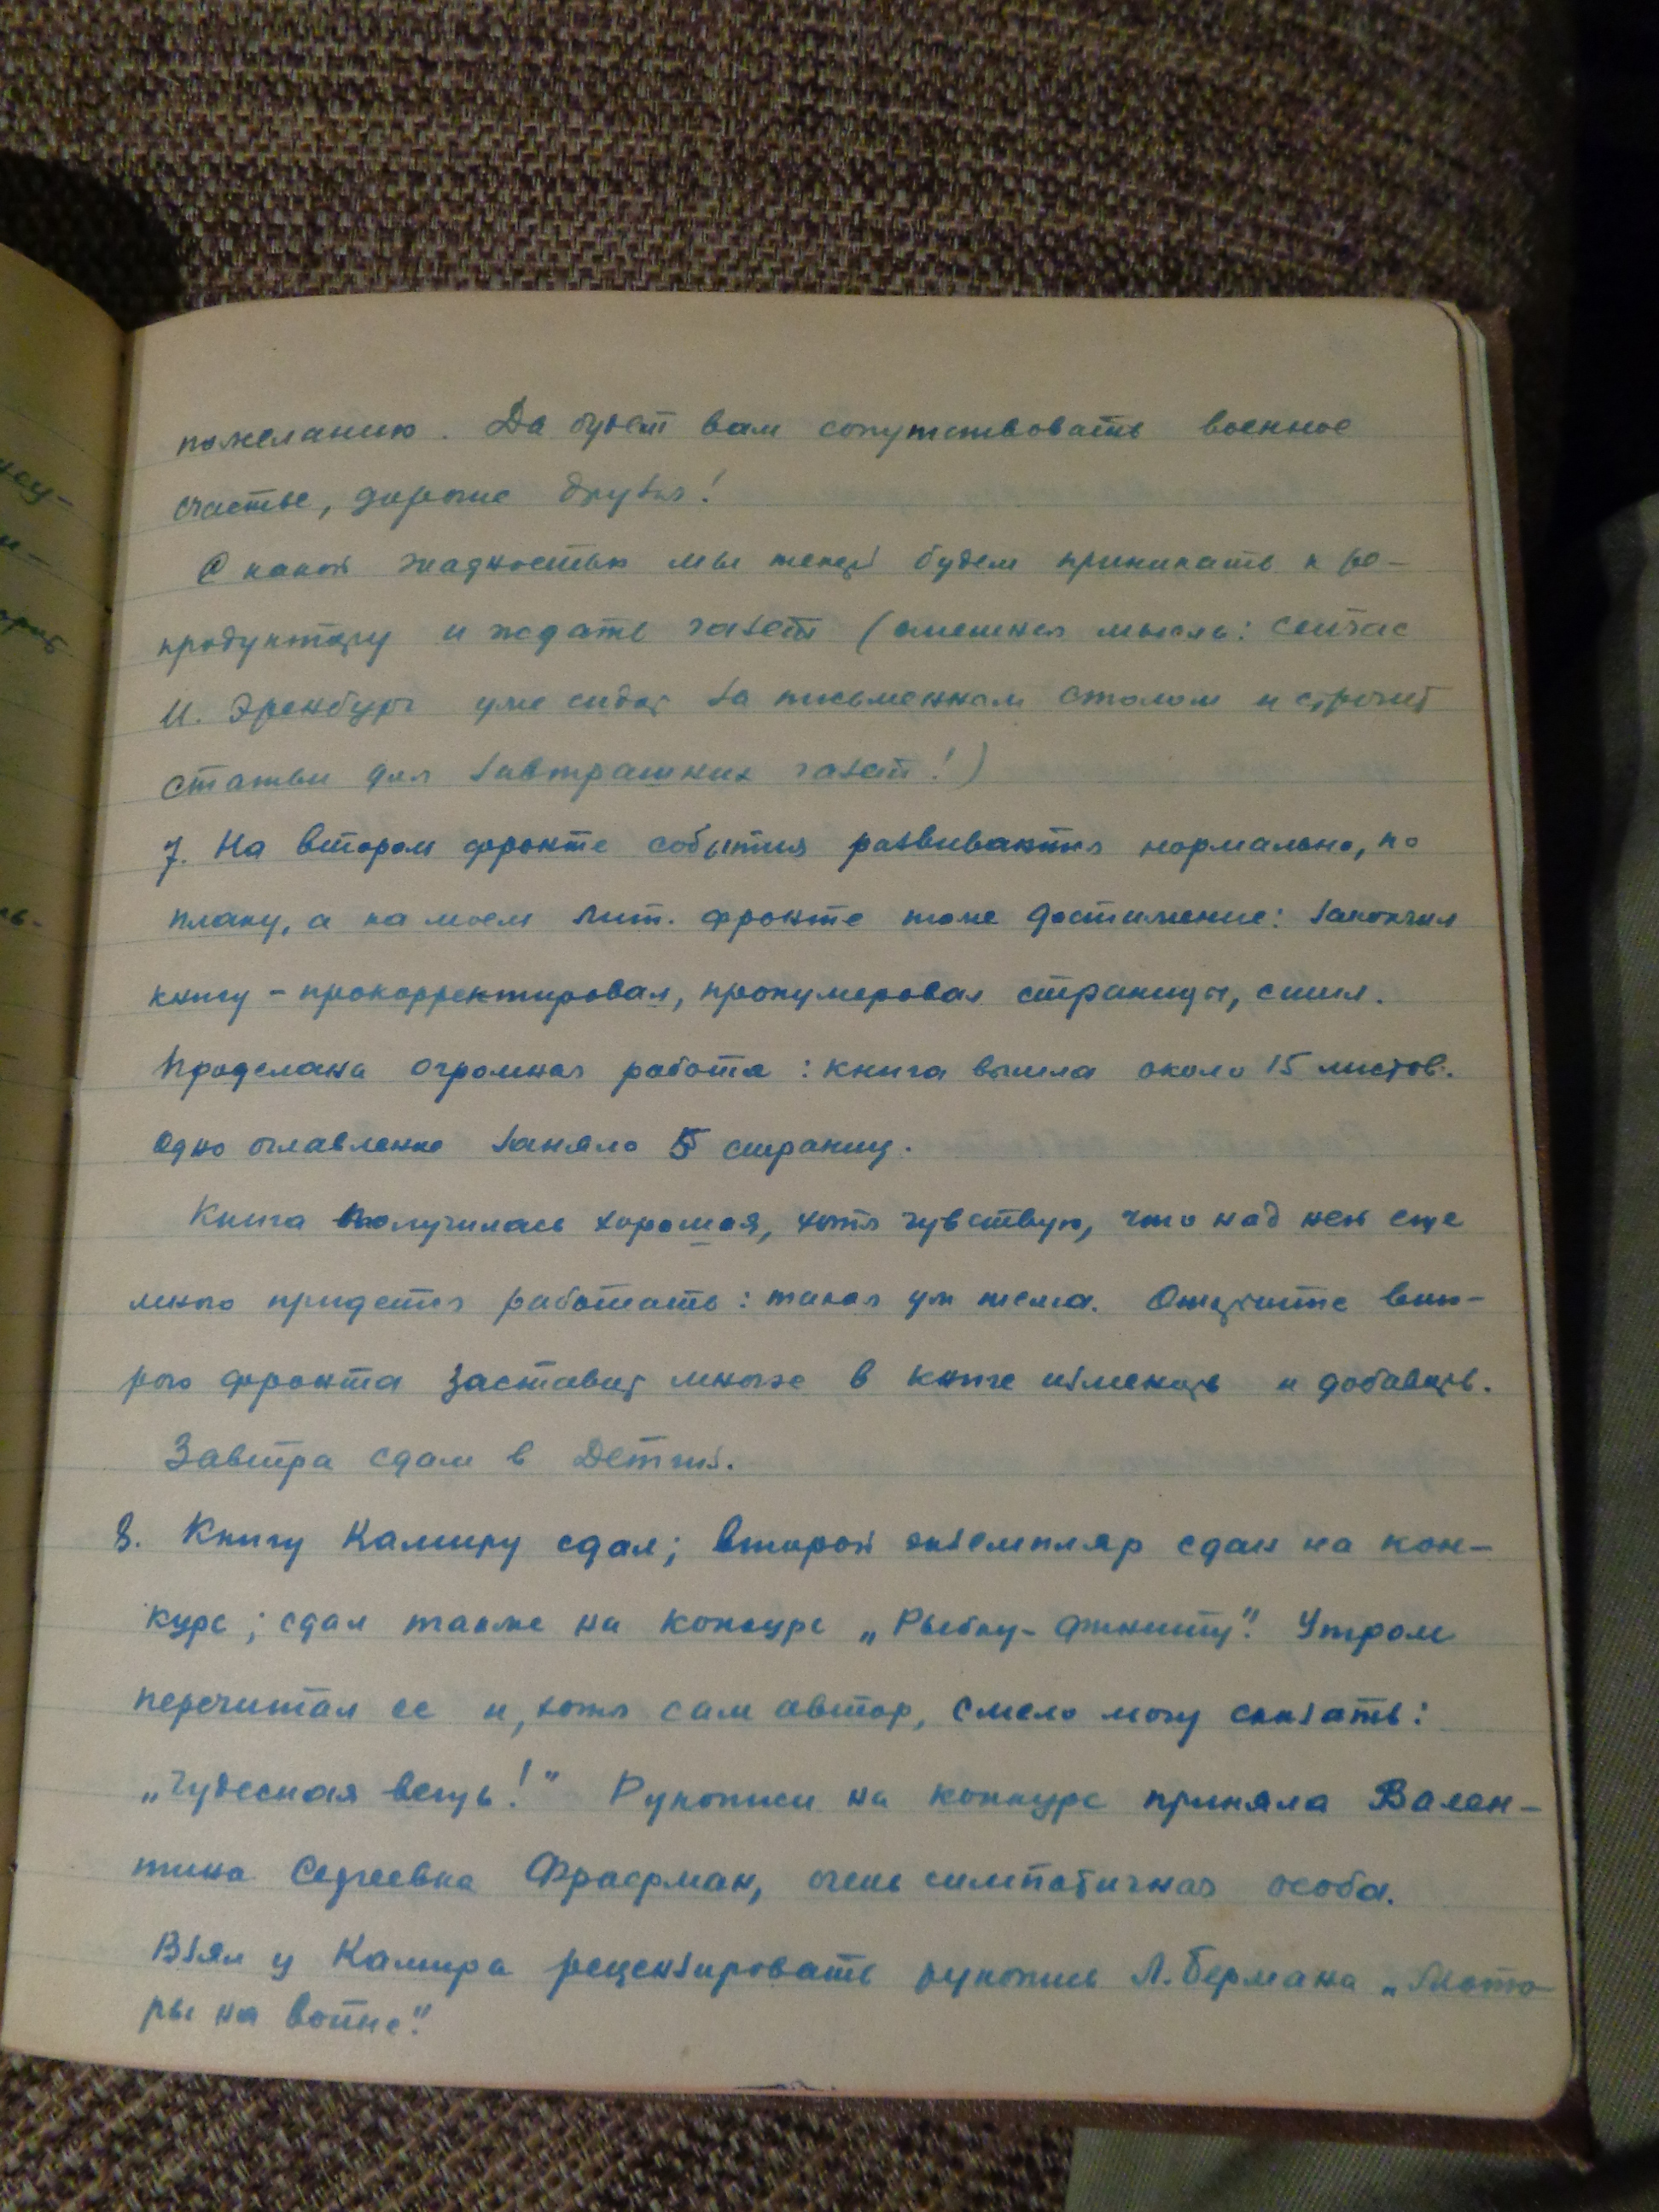 пожеланию. Да будет вам сопутствовать военное
счастье, дорогие друзья!
С какой жадностью мы теперь будем приникать к ре-
продуктору и ждать газет (смешная мысль: сейчас
И. Эренбург уже сидит за письменным столом и строчит
статьи для завтрашних газет!)
7. На втором фронте события развиваются нормально, по
плану, а на моем лит. фронте тоже достижение: закончил
книгу – прокорректировал, пронумеровал страницы, сшил.
Проделана огромная работа: книга вышла около 15 листов.
Одно оглавление заняло 5 страниц.
Книга получилась хорошая, хотя чувствую, что над ней еще
много придется работать: такая уж тема. Открытие вто-
рого фронта заставит многое в книге изменить и добавить.
Завтра сдам в Детгиз.
8. Книгу Камиру сдал; второй экземпляр сдан на кон-
курс; сдал также на конкурс „Рыбку-Финиту". Утром
перечитал ее и, хотя сам автор, смело могу сказать:
„Чудесная вещь!" Рукописи на конкурс приняла Вален-
тина Сергеевна Фраерман, очень симпатичная особа.
Взял у Камира рецензировать рукопись Л. Бермана „Мото-
ры на войне".